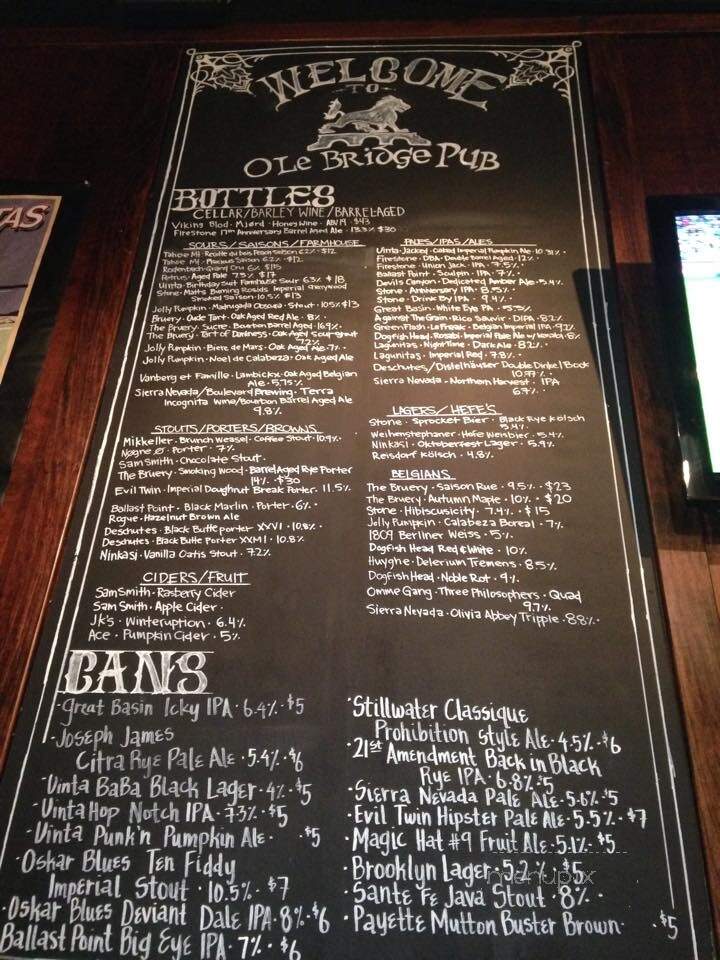 TAS
WELCOME
TO
OLE BRIDGE PUB
BOTTLES
CELLAR/BARLEY WINE/BARREL-AGED
Viking Blod · Mjord · Honey Wine · ABV 19 · $43
Firestone 17th Anniversary Barrel Aged Ale · 13.3% $30
SOURS/SAISONS/FARMHOUSE
Tahoe Mt · Route du bois Peach Saison 6.2% · $12
Tahoe Mt · Precious Saison 6.2% · $12
Rodenbach · Grand Cru 6% $15
Petrus · Aged Pale 7.3% · $17
Uinta · Birthday Suit Farmhouse Sour 6.3% $18
Stone · Matt's Burning Rosids Imperial Cherrywood
Smoked Saison · 10.5% $13
Jolly Pumpkin · Madrugada Obscura · Stout · 10.5% $13
Bruery · Oude Tart · Oak Aged Red Ale · 8% ·
The Bruery · Sucre · Bourbon Barrel Aged 16.9% ·
The Bruery · Tart of Darkness · Oak Aged Sour stout
7.2%
Jolly Pumpkin · Biere de Mars · Oak Aged Ale · 7% ·
Jolly Pumpkin · Noel de Calabeza · Oak Aged Ale
Vanberg et Famille · Lambickx · Oak Aged Belgian
Ale · 5.75%
Sierra Nevada/Boulevard Brewing · Terra
Incognita Wine/Bourbon Barrel Aged Ale
9.8% ·
STOUTS/PORTERS/BROWNS
Mikkeller · Brunch Weasel · Coffee Stout · 10.9% ·
Nøgne ø · Porter · 7%
Sam Smith · Chocolate Stout ·
The Bruery · Smoking Wood · Barrel Aged Rye Porter
14% · $30
Evil Twin · Imperial Doughnut Break Porter · 11.5%
Ballast Point · Black Marlin · Porter · 6% ·
Rogue · Hazelnut Brown Ale
Deschutes · Black Butte porter XXVI · 10.8% ·
Deschutes · Black Butte Porter XXMI · 10.8%
Ninkasi · Vanilla Oatis Stout · 7.2%
CIDERS/FRUIT
Sam Smith · Rasberry Cider
Sam Smith · Apple Cider ·
Jk's · Winteruption · 6.4%
Ace · Pumpkin Cider · 5%
PALES/IPAS/ALES
Uinta · Jacked · Oaked Imperial Pumpkin Ale · 10.31% ·
Firestone · DBA · Double Barrel Aged · 12% ·
Firestone · Union Jack · IPA · 7.5% ·
Ballast Point · Sculpin · IPA · 7% ·
Devils Canyon · Dedicated Amber Ale · 5.4%
Stone · Anniversary IPA · 8.5% ·
Stone · Drink By IPA · 9.4% ·
Great Basin · White Eye PA · 5.5%
Against The Grain · Rico Sauvin · DIPA · 8.2%
Green Flash · Le Freak · Belgian Imperial IPA · 9.2%
Dogfish Head · Rosabi · Imperial Pale Ale w/ Wasabi · 8%
Lagunitas · Night Time · Dark Ale · 8.2% ·
Lagunitas · Imperial Red · 7.8% ·
Deschutes/Distelhäuser Double Dinkel/Bock
10.??% · ·
Sierra Nevada · Northern Harvest · IPA
6.7% ·
LAGERS/HEFE'S
Stone · Sprocket Bier · Black Rye Kölsch
5.4% ·
Weihenstephaner · Hefe Weisbier · 5.4% ·
Ninkasi · Oktoberfest Lager · 5.9%
Reisdorf Kölsch · 4.8% ·
BELGIANS
The Bruery · Saison Rue · 9.5% · $23
The Bruery · Autumn Maple · 10% · $20
Stone · Hibiscusicity · 7.4% · $15
Jolly Pumpkin · Calabeza Boreal · 7%
1809 Berliner Weiss · 5% ·
Dogfish Head Red & White · 10%
Huyghe · Delerium Tremens · 8.5%
Dogfish Head · Noble Rot · 9%
Omme Gang · Three Philosophers · Quad
9.7% ·
Sierra Nevada · Olivia Abbey Tripple · 8.8% ·
CANS
·Great Basin Icky IPA · 6.4% · $5
·Joseph James
Citra Rye Pale Ale · 5.4% · $6
·Uinta BaBa Black Lager · 4% · $5
·Uinta Hop Notch IPA · 7.3% · $5
·Uinta Punk'n Pumpkin Ale · · $5
·Oskar Blues Ten Fiddy
Imperial Stout · 10.5% · $7
·Oskar Blues Deviant Dale IPA · 8% · $6
Ballast Point Big Eye IPA · 7% · $6
·Stillwater Classique
Prohibition Style Ale · 4.5% · $6
·21st Amendment Back in Black
Rye IPA · 6.8% · $5
·Sierra Nevada Pale Ale · 5.6% · $5
·Evil Twin Hipster Pale Ale · 5.5% · $7
·Magic Hat #9 Fruit Ale · 5.1% · $5
·Brooklyn Lager · 5.2% · $5
·Sante Fe Java Stout · 8% ·
·Payette Mutton Buster Brown · · $5
menupix